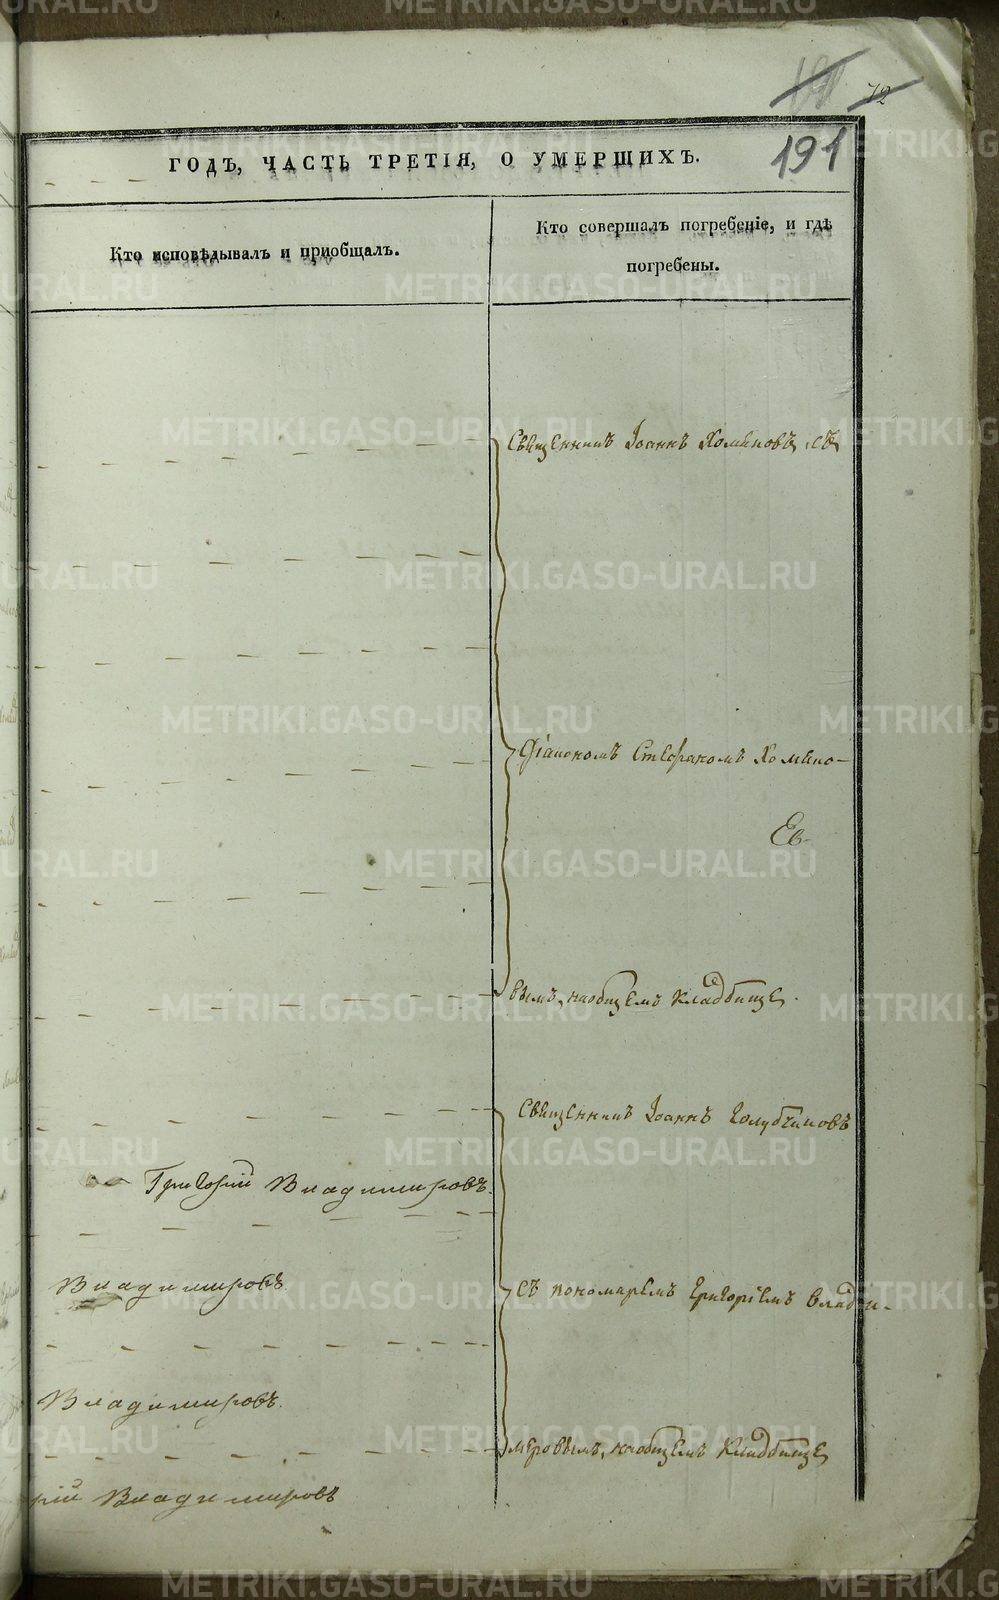 72
191
ГОДЪ, ЧАСТЬ ТРЕТІЯ, О УМЕРШИХЪ.
Кто исповѣдывалъ и пріобщалъ.
Кто совершалъ погребеніе, и гдѣ
погребены.
Священникъ Іоаннъ Хомяковъ, съ
Діакономъ Стефаномъ Хомяко-
вымъ, на общемъ кладбище.
Священникъ Іоаннъ Голубчиковъ
Григорій Владимировъ.
Владимировъ
съ пономаремъ Григоріемъ Влади-
Владимировъ.
мировымъ, на общемъ кладбище
рій Владимировъ
METRIKI.GASO-URAL.RU